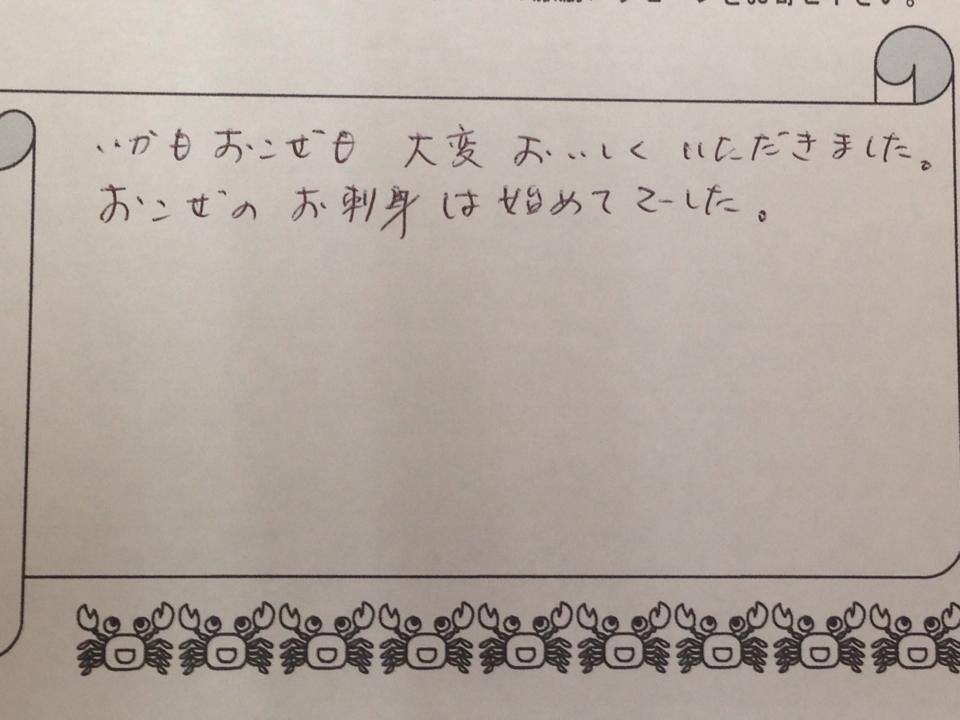 いかもおこぜも 大変 おいしく いただきました。
おこぜの お刺身は始めてでした。